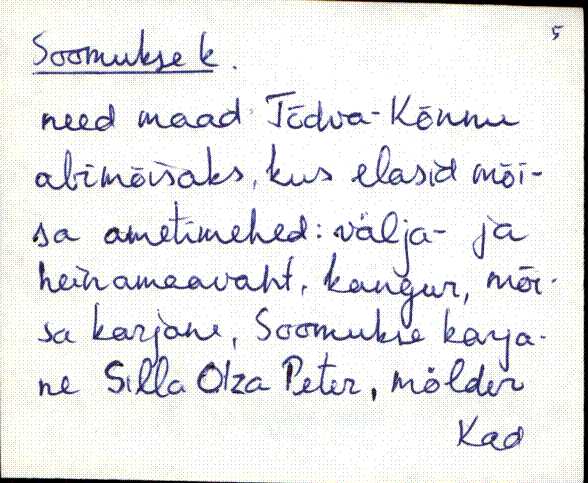 5
Soomukse k.
need maad Tõdva-Kõnnu
abimõisaks, kus elasid mõi-
sa ametimehed: välja- ja
heinamaavaht, kangur, mõi-
sa karjane, Soomukse karja-
ne Silla Otza Peter, mölder
Kad